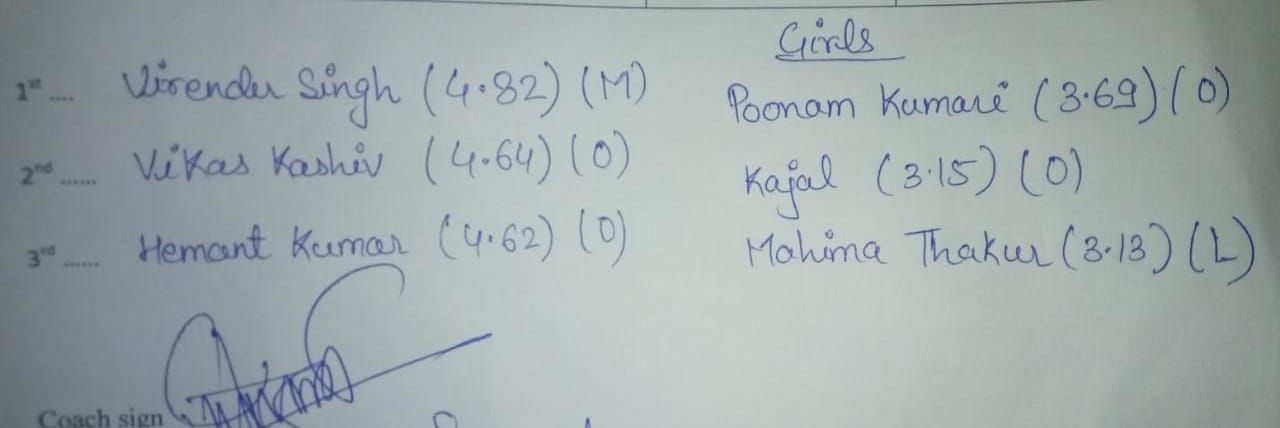 Girls
1st .... Virender Singh (4.82) (M) Poonam Kumari (3.69) (O)
2nd ...... Vikas Kashiv (4.64) (O) Kajal (3.15) (O)
3rd ...... Hemant Kumar (4.62) (O) Mahima Thakur (3.13) (L)
Coach sign